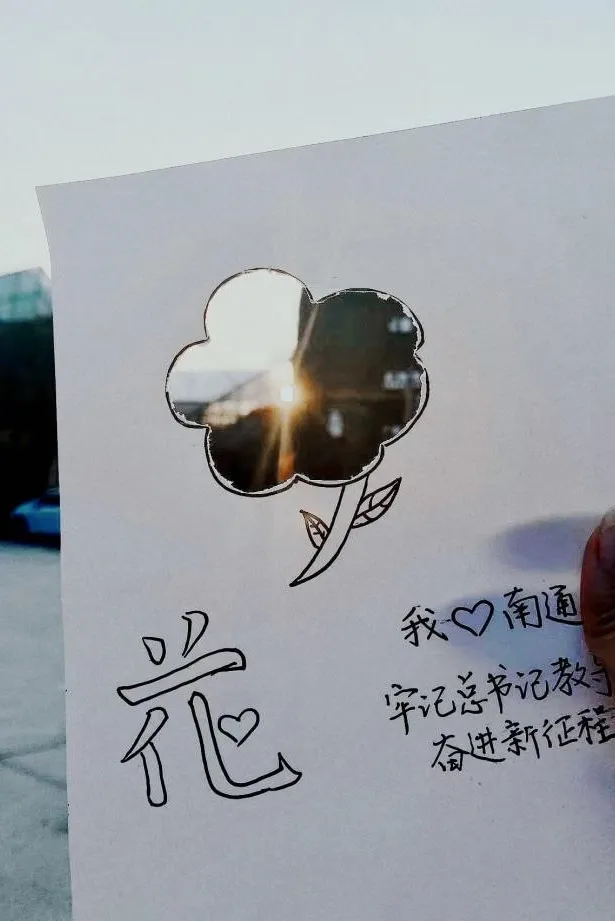 花
我♡南通
牢记总书记教
奋进新征程